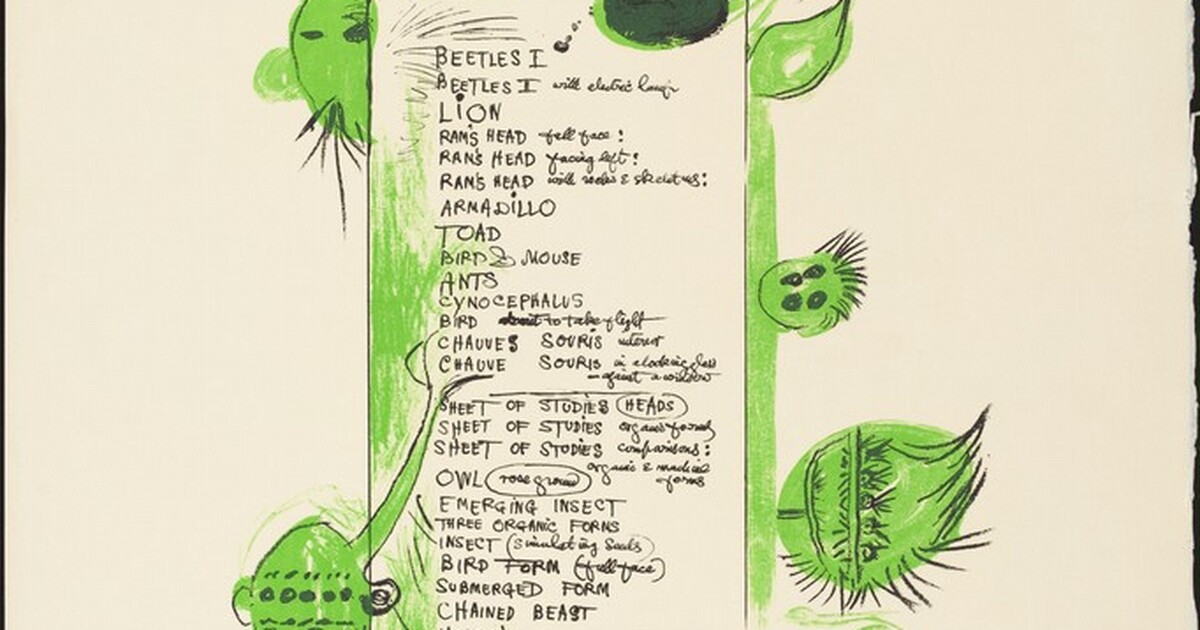 BEETLES I
BEETLES II with electric lamp
LION
RAM'S HEAD full face:
RAM'S HEAD facing left:
RAM'S HEAD with rocks & skeletons:
ARMADILLO
TOAD
BIRD & MOUSE
ANTS
CYNOCEPHALUS
BIRD about to take flight
CHAUVES SOURIS interior
CHAUVE SOURIS in looking glass
against a window
SHEET OF STUDIES HEADS
SHEET OF STUDIES organic forms
SHEET OF STUDIES comparisons:
organic &
forms
OWL (rose ground)
EMERGING INSECT
THREE ORGANIC FORMS
INSECT (simulating Seeds)
BIRD FORM (full face)
SUBMERGED FORM
CHAINED BEAST